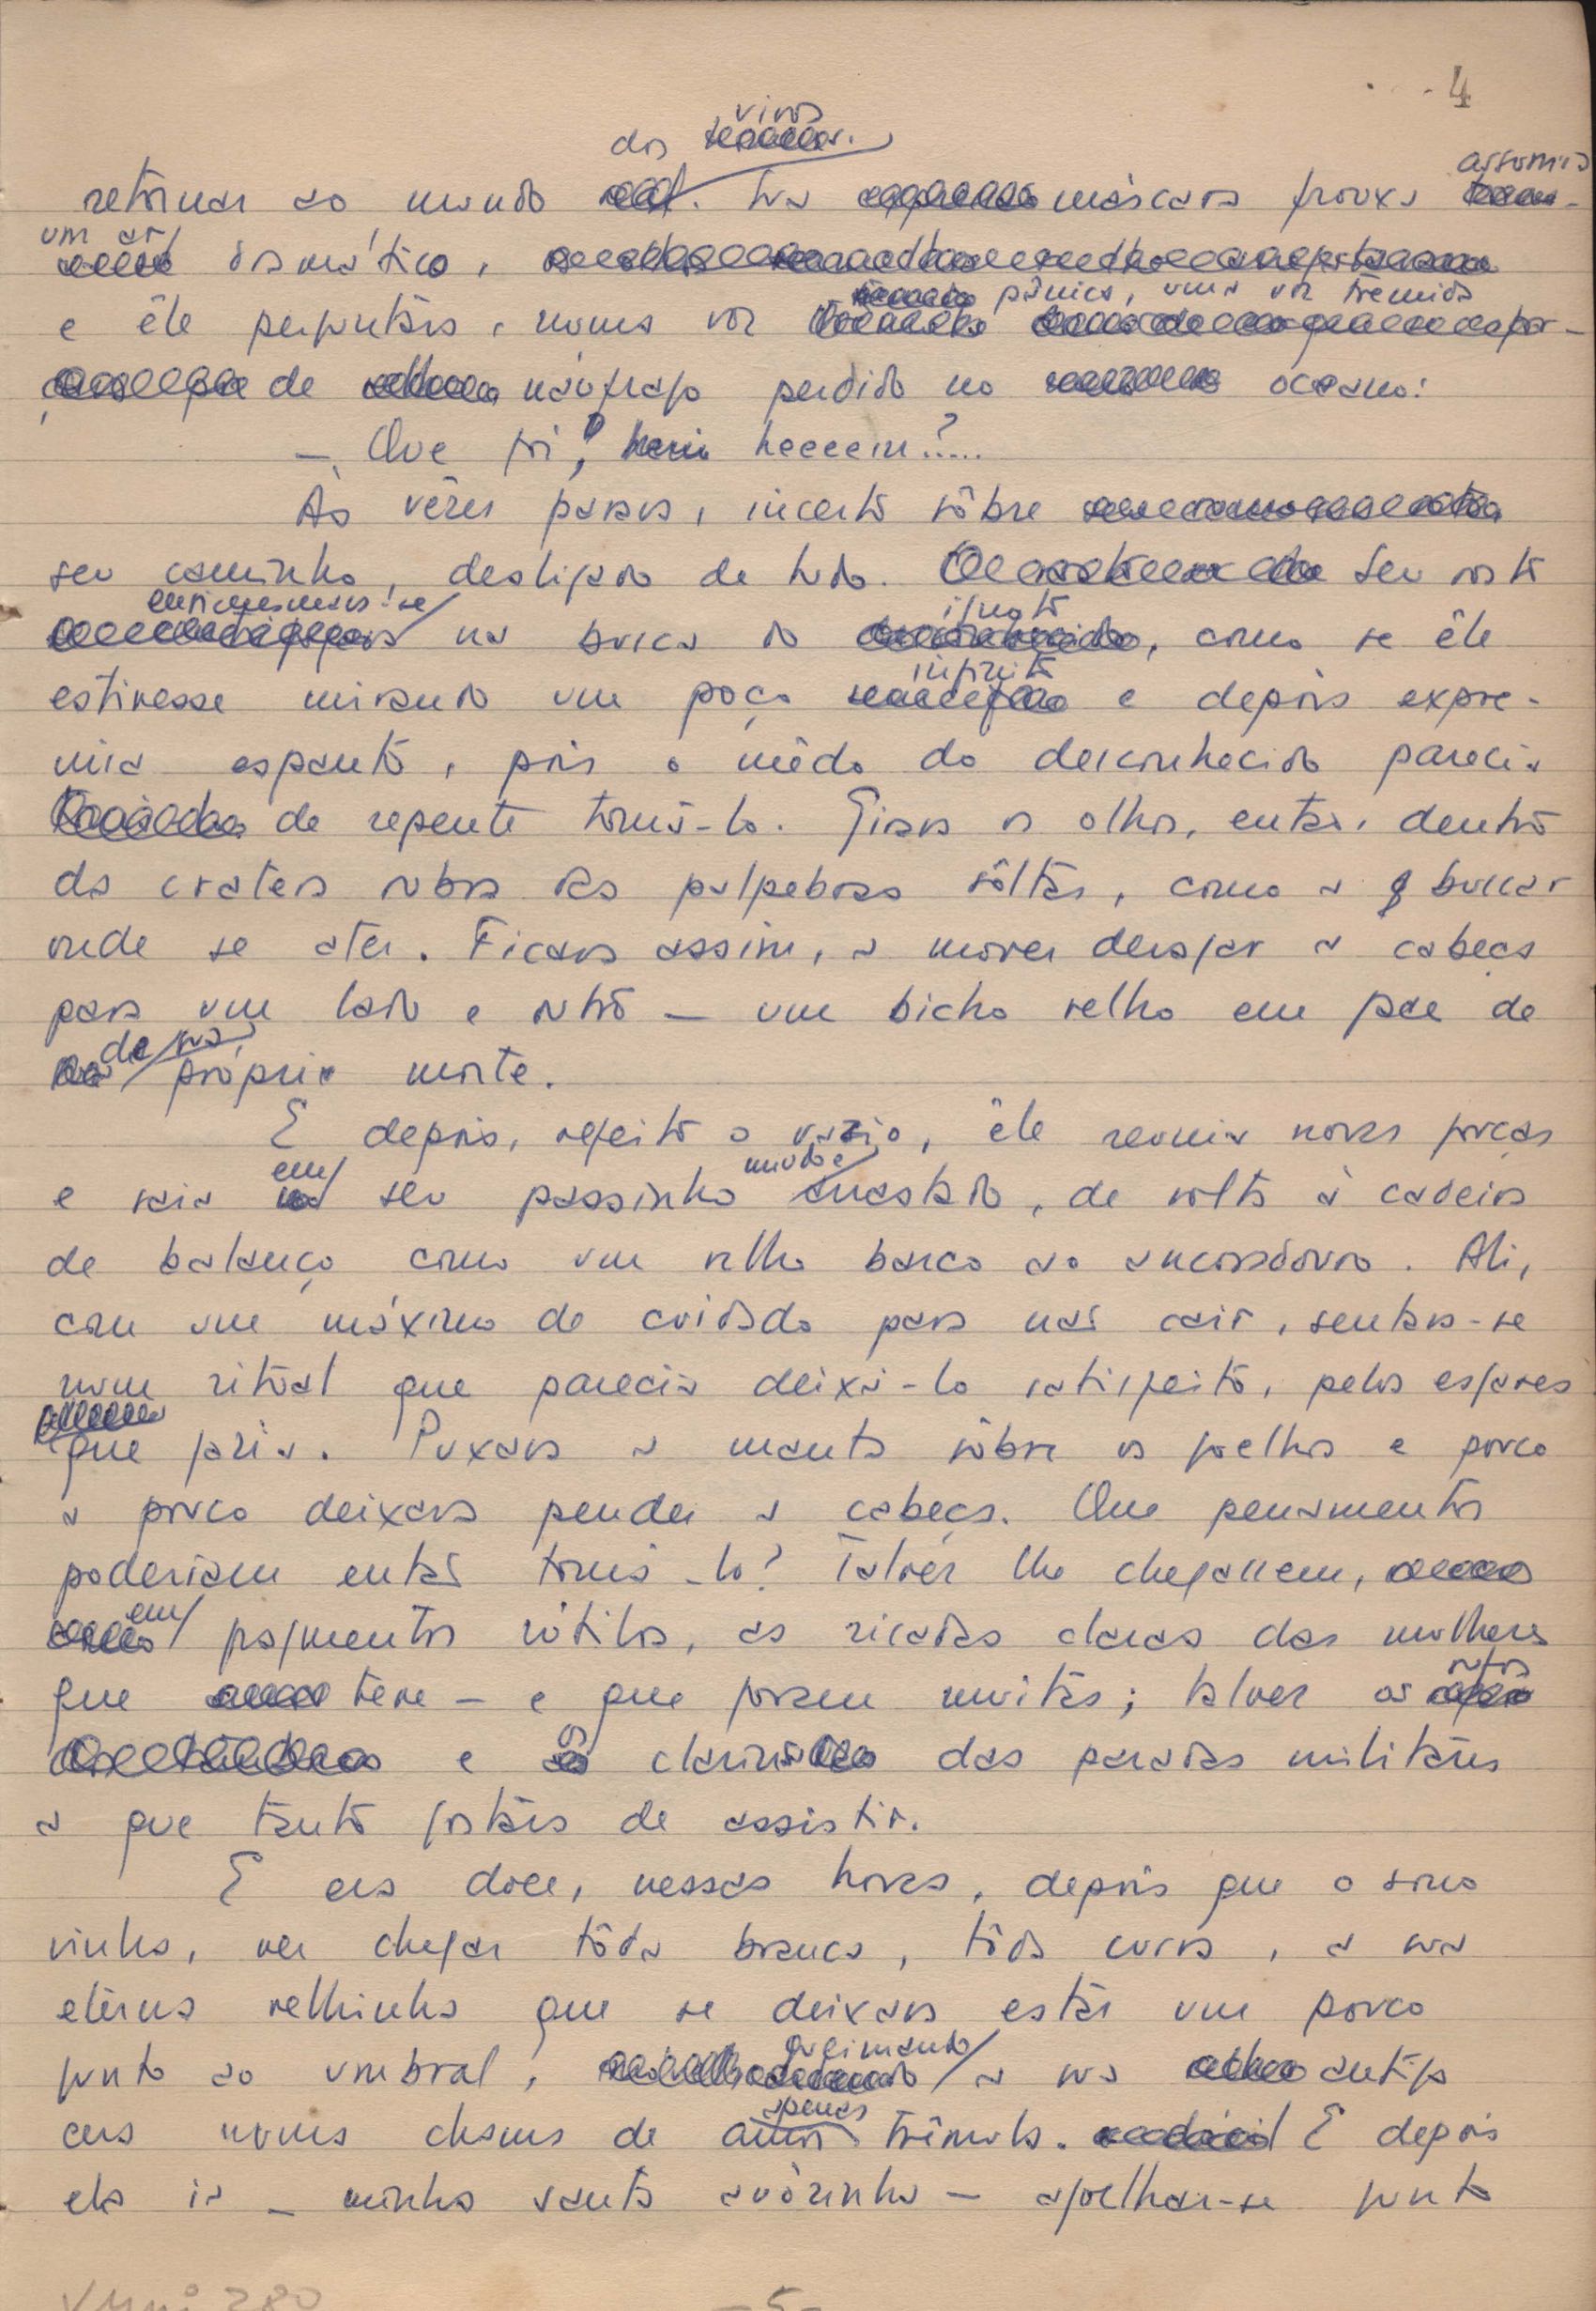 4
dos vivos
retornar ao mundo. Sua máscara frouxa assumia
um ar dramático,
pânica, uma voz tremida
e êle perguntava, numa voz
de náufrago perdido no oceano:
— Que foi, heeeein?....
Às vêzes parava, incerto sôbre
seu caminho, desligado de tudo. Seu rosto
ensimesmava-se na busca do ignoto, como se êle
estivesse mirando um poço infinito e depois expre-
mia espanto, pois o mêdo do desconhecido parecia
de repente tomá-lo. Girava os olhos, então, dentro
da cratera rubra das pálpebras sôltas, como a buscar
onde se ater. Ficava assim, a mover devagar a cabeça
para um lado e outro — um bicho velho em face de
de sua própria morte.
E depois, refeito o vazio, êle reunia novas forças
e saía em seu passinho miudo e arrastado, de volta à cadeira
de balanço como um velho barco ao ancoradouro. Ali,
com um máximo de cuidado para não cair, sentava-se
num ritual que parecia deixá-lo satisfeito, pelos esgares
que fazia. Puxava a manta sôbre os joelhos e pouco
a pouco deixava pender a cabeça. Que pensamentos
poderiam então tomá-lo? Talvez lhe chegassem,
em fragmentos rútilos, as risadas claras das mulheres
que teve — e que foram muitas; talvez os rufos
e os clarins das paradas militares
a que tanto gostava de assistir.
E era doce, nessas horas, depois que o sono
vinha, ver chegar tôda branca, tôda curva, a sua
eterna velhinha que se deixava estar um pouco
junto ao umbral, queimando a sua antiga
cera numa chama de amor apenas trêmula. E depois
ela ia — minha santa avòzinha — ajoelhar-se junto
- 5 -